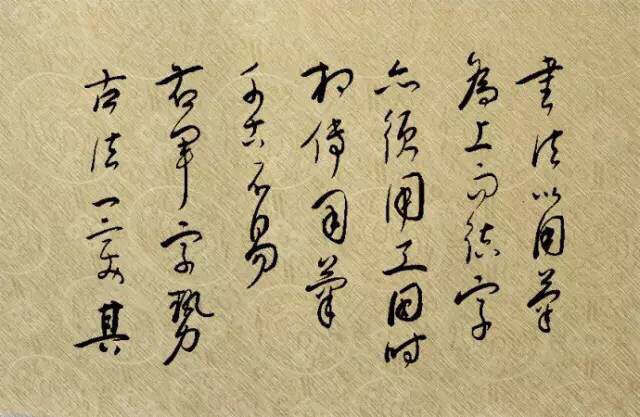 書法以用筆
為上而結字
亦須用工因時
相傳用筆
千古不易
右軍字勢
古法一變其